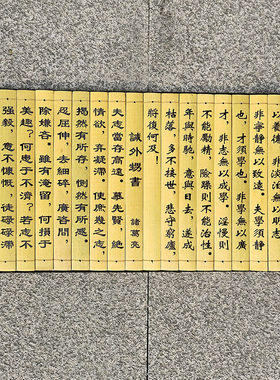 以養德，非淡泊無以明志
非寧靜無以致遠。夫學須靜
也，才須學也。非學無以廣
才，非志無以成學。淫慢則
不能勵精，險躁則不能治性。
年與時馳，意與日去，遂成
枯落，多不接世，悲守窮廬，
將復何及！
誡外甥書 諸葛亮
夫志當存高遠，慕先賢，絕
情欲，棄凝滯，使庶幾之志，
揭然有所存，惻然有所感。
忍屈伸，去細碎，廣咨問，
除嫌吝。雖有淹留，何損于
美趣？何患于不濟？若志不
強毅，意不慷慨，徒碌碌滯